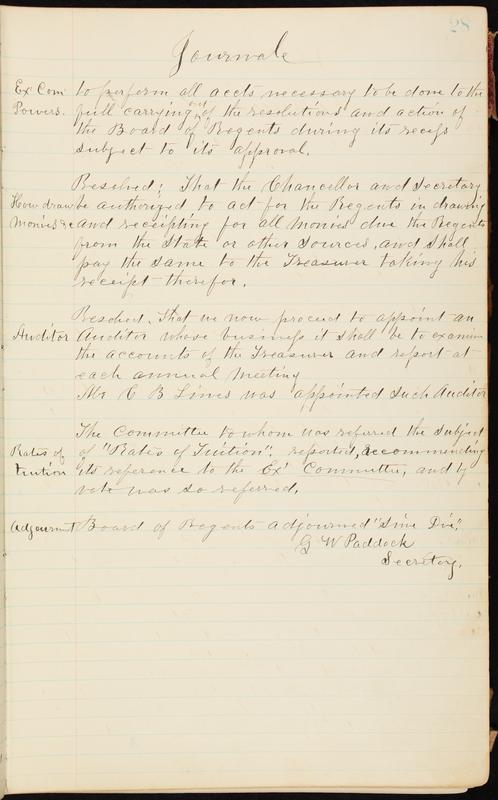 28
Journal
Ex Com to perform all accts necessary to be done to the
Powers. full carrying out of the resolutions and action of
the Board of Regents during its recess
subject to its approval.
Resolved; That the Chancellor and Secretary
How draw be authorized to act for the Regents in drawing
Monies &c and receipting for all Monies due the Regents
from the State or other sources, and shall
pay the same to the Treasurer taking his
receipt therefor.
Resolved. That we now proceed to appoint an
Auditor Auditor whose business it shall be to examine
the accounts of the Treasurer and report at
each annual meeting
Mr C B Lines was appointed such Auditor
The Committee to whom was referred the subject
Rates of of "Rates of Tuition". reported, recommending
Tuition its reference to the Ex' Committee, and by
vote was so referred.
Adjournmt Board of Regents adjourned "Sine Die".
G W Paddock
Secretary.